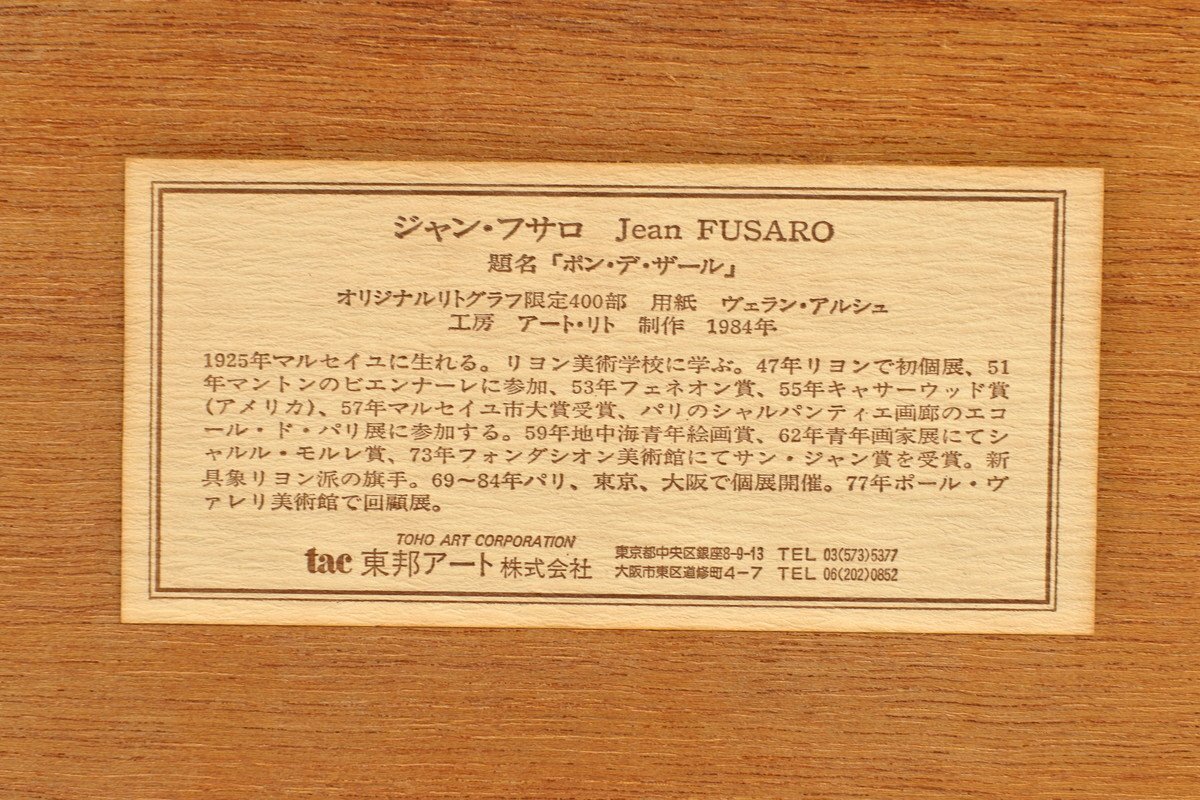 ジャン・フサロ　Jean FUSARO
題名『ポン・デ・ザール』
オリジナルリトグラフ限定400部　用紙　ヴェラン・アルシュ
工房　アート・リト　制作　1984年
1925年マルセイユに生れる。リヨン美術学校に学ぶ。47年リヨンで初個展、51
年マントンのビエンナーレに参加、53年フェネオン賞、55年キャサーウッド賞
(アメリカ)、57年マルセイユ市大賞受賞、パリのシャルパンティエ画廊のエコ
ール・ド・パリ展に参加する。59年地中海青年絵画賞、62年青年画家展にてシ
ャルル・モルレ賞、73年フォンダシオン美術館にてサン・ジャン賞を受賞。新
具象リヨン派の旗手。69〜84年パリ、東京、大阪で個展開催。77年ポール・ヴ
ァレリ美術館で回顧展。
TOHO ART CORPORATION
tac 東邦アート株式会社
東京都中央区銀座8-9-13　TEL 03(573)5377
大阪市東区道修町4-7　TEL 06(202)0852